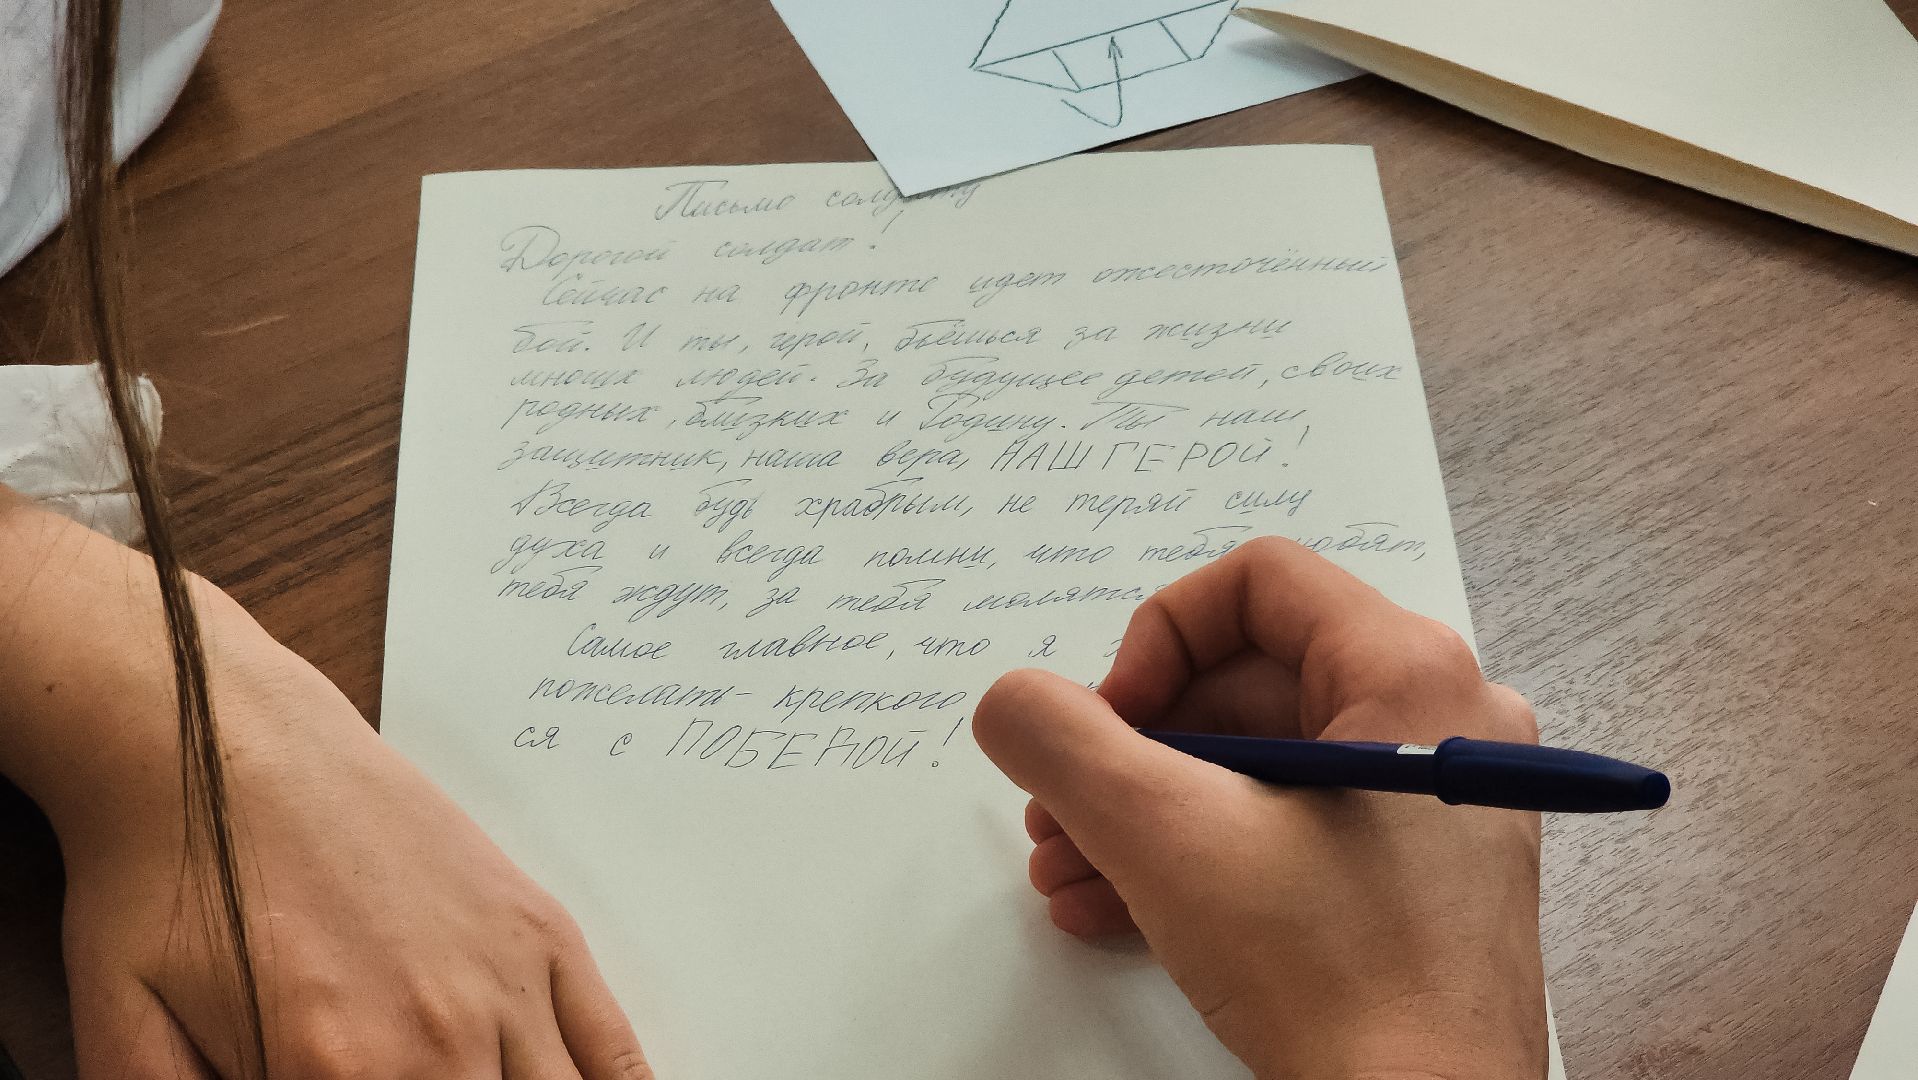 Письмо солдату
Дорогой солдат!
Сейчас на фронте идет ожесточённый
бой. И ты, герой, бьёшься за жизни
многих людей. За будущее детей, своих
родных, близких и Родину. Ты наш
защитник, наша вера, НАШ ГЕРОЙ!
Всегда будь храбрым, не теряй силу
духа и всегда помни, что тебя любят,
тебя ждут, за тебя молятся
Самое главное, что я
пожелать - крепкого
ся с ПОБЕДОЙ!